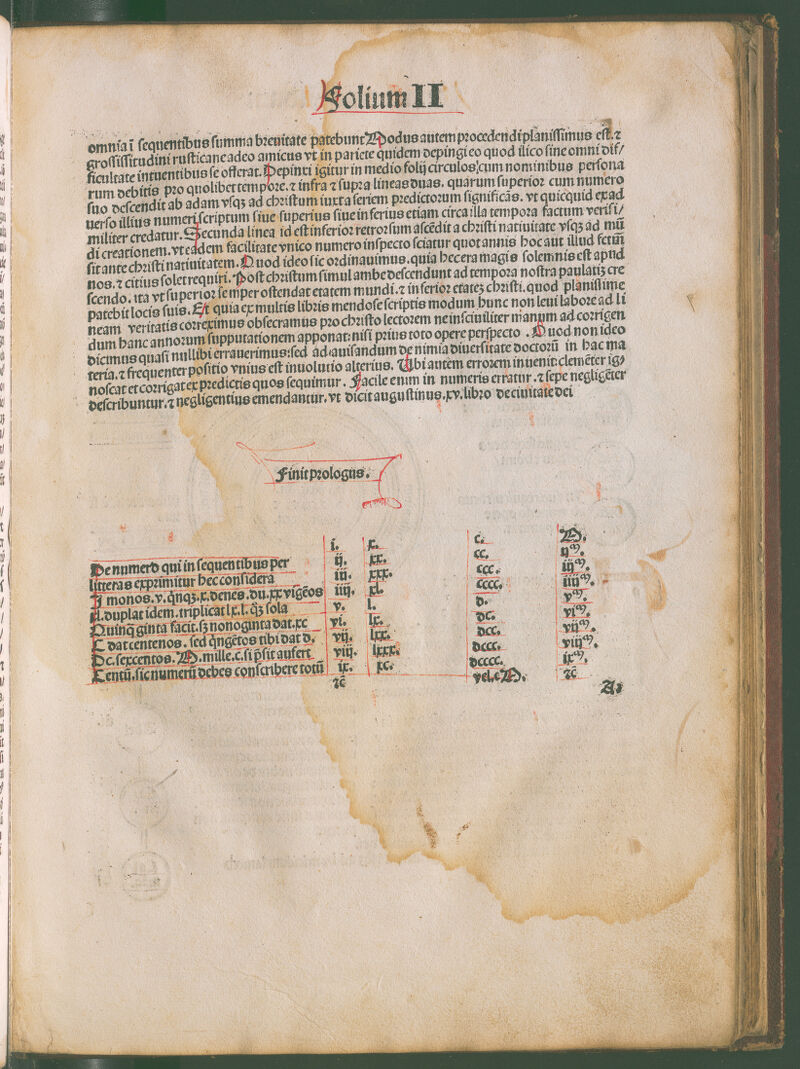 Folium II
omnia ī sequentibus summa breuitate patebunt Modus autem procedendi planissimus est. ⁊
grossissitudini rusticane adeo amicus vt in pariete quidem depingi eo quod ilico sine omni dif/
ficultate intuentibus se offerat. Depinxi igitur in medio folij circulos, cum nominibus persona
rum debitis pro quolibet tempore. ⁊ infra ⁊ supra lineas duas. quarum superior cum numero
suo descendit ab adam vsqꝫ ad christum iuxta seriem predictorum significās. vt quicquid ex ad
uerso illius numeri scriptum siue superius siue inferius etiam circa illa tempora factum verisi/
militer credatur. Secunda linea id est inferior retrorsum ascēdit a christi natiuitate vsqꝫ ad mū
di creationem. vt eadem facilitate vnico numero inspecto sciatur quot annis hoc aut illud fctm̄
sit ante christi natiuitatem. Quod ideo sic ordinauimus. quia hec era magis solemnis est apud
nos. ⁊ citius solet requiri. Post christum simul ambe descendunt ad tempora nostra paulatiꝫ cre
scendo. ita vt superior semper ostendat etatem mundi. ⁊ inferior etateꝫ christi. quod planissime
patebit locis suis. Et quia ex multis libris mendose scriptis modum hunc non leui labore ad li
neam veritatis correximus obsecramus pro christo lectorem ne insciuiliter manum ad corrigen
dum hanc annorum supputationem apponat: nisi prius toto opere perspecto . Quod non ideo
dicimus quasi nullibi errauerimus: sed ad auisandum de nimia diuersitate doctorū in hac ma
teria. ⁊ frequenter positio vnius est inuolutio alterius. Vbi autem errorem inuenit: clemēter ig/
noscat et corrigat ex predictis quos sequimur . Facile enim in numeris erratur. ⁊ sepe negligēter
describuntur. ⁊ negligentius emendantur. vt dicit augustinus. xv. libro de ciuitate dei
Finit prologus.
De numero qui in sequentibus per
litteras exprimitur hec considera
I monos. v. qͥnqꝫ. x. denos. du. xx vigēos
L duplat idem. triplicat lx. l. qͥꝫ sola
Quinqͣ ginta facit. sꝫ nonoginta dat. xc
C dat centenos. sed qͥngētos tibi dat d.
Dc. sexcentos. M. mille. c. si p̄sit aufert
Centū. sic numerū debes conscribere totū
i. x. c. M.
ij. xx. cc. ijᵐ.
iij. xxx. ccc. iijᵐ.
iiij. xl. cccc. iiijᵐ.
v. l. d. vᵐ.
vi. lx. dc. viᵐ.
vij. lxx. dcc. vijᵐ.
viij. lxxx. dccc. viijᵐ.
ix. xc. dcccc. ixᵐ.
⁊c̄ vel. cM. ⁊c̄